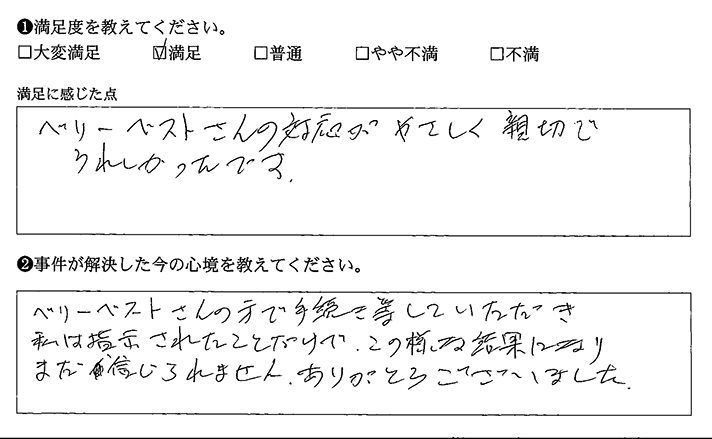 ❶満足度を教えてください。
□大変満足 ☑満足 □普通 □やや不満 □不満
満足に感じた点
ベリーベストさんの対応がやさしく親切で
うれしかったです。
❷事件が解決した今の心境を教えてください。
ベリーベストさんの方で手続き等していただき
私は指示されたことだけで、この様な結果になり
まだ信じられません。ありがとうございました。